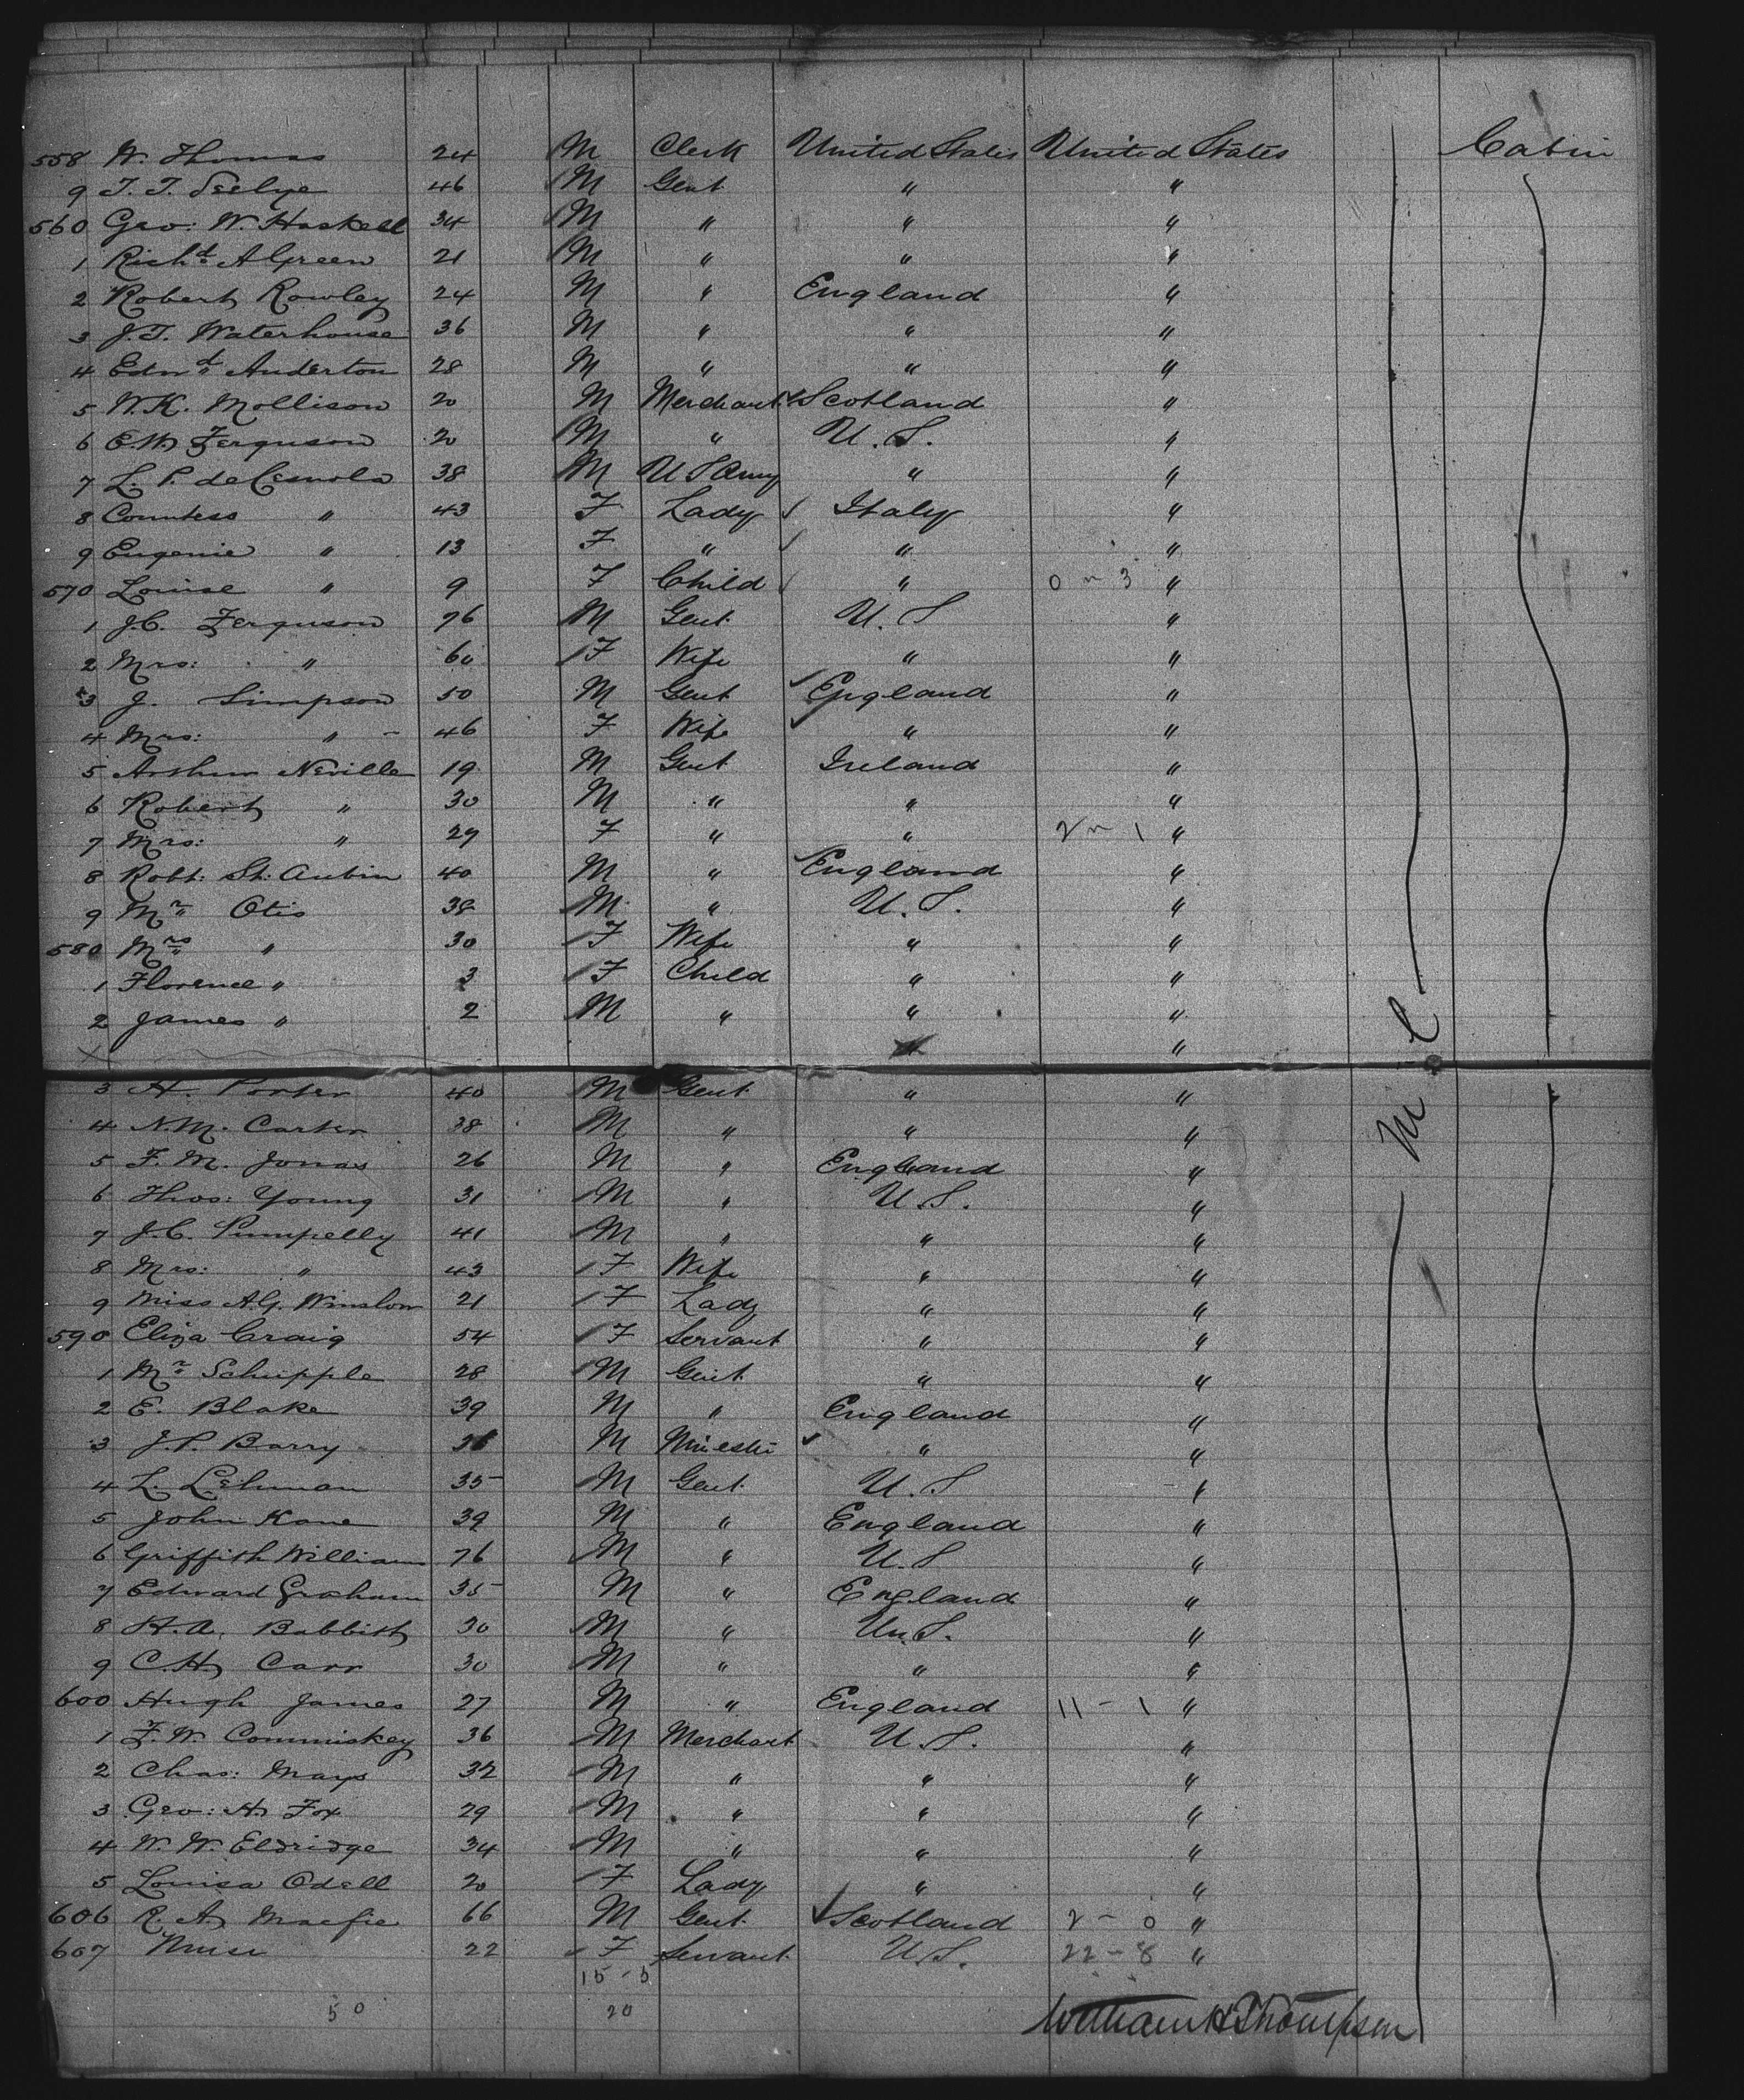 558 W. Thomas 24 M Clerk United States United States Cabin
9 T. T. Seelye 46 M Gent " "
560 Geo: W. Haskell 34 M " " "
1 Richd A Green 21 M " " "
2 Robert Rowley 24 M " England "
3 J. T. Waterhouse 36 M " " "
4 Edwd Anderton 28 M " " "
5 W. K. Mollison 20 M Merchant Scotland "
6 E. W. Ferguson 20 M " U. S. "
7 L. P. de Cesnola 38 M U S Army " "
8 Countess " 43 F Lady Italy "
9 Eugenie " 13 F " " "
570 Louise " 9 F Child " 0 ~ 3 "
1 J. C. Ferguson 76 M Gent. U. S "
2 Mrs: " 60 F Wife " "
3 J. Simpson 50 M Gent England "
4 Mrs: " 46 F Wife " "
5 Arthur Neville 19 M Gent Ireland "
6 Robert " 30 M " " "
7 Mrs: " 29 F " " 2 ~ 1 "
8 Robt: St. Aubin 40 M " England "
9 Mr Otis 38 M " U. S. "
580 Mrs " 30 F Wife " "
1 Florence " 3 F Child " "
2 James " 2 M " " "
"
3 H. Porter 40 M Gent " "
4 N. M. Carter 38 M " " "
5 F. M. Jonas 26 M " England "
6 Thos: Young 31 M " U. S. "
7 J. C. Pumpelly 41 M " " "
8 Mrs: " 43 F Wife " "
9 Miss A. G. Winslow 21 F Lady " "
590 Eliza Craig 54 F Servant " "
1 Mr Schipple 28 M Gent " "
2 E. Blake 39 M " England "
3 J. P. Barry M Minester " "
4 L. Lehman 35 M Gent. U. S "
5 John Kane 39 M " England "
6 Griffith Williams 76 M " U. S "
7 Edward Graham 35 M " England "
8 H. A. Babbith 30 M " Un. S. "
9 C. H. Carr 30 M " " "
600 Hugh James 27 M " England 11 - 1 "
1 F. W. Commiskey 36 M Merchant U. S. "
2 Chas: Mays 32 M " " "
3 Geo: H. Fox 29 M " " "
4 W. W. Eldridge 34 M " " "
5 Louisa Odell 20 F Lady " "
606 R. A. Macfie 66 M Gent Scotland 2 - 0 "
607 Nurse 22 F Servant U. S. 22 - 8 "
50 20
William H Thompson